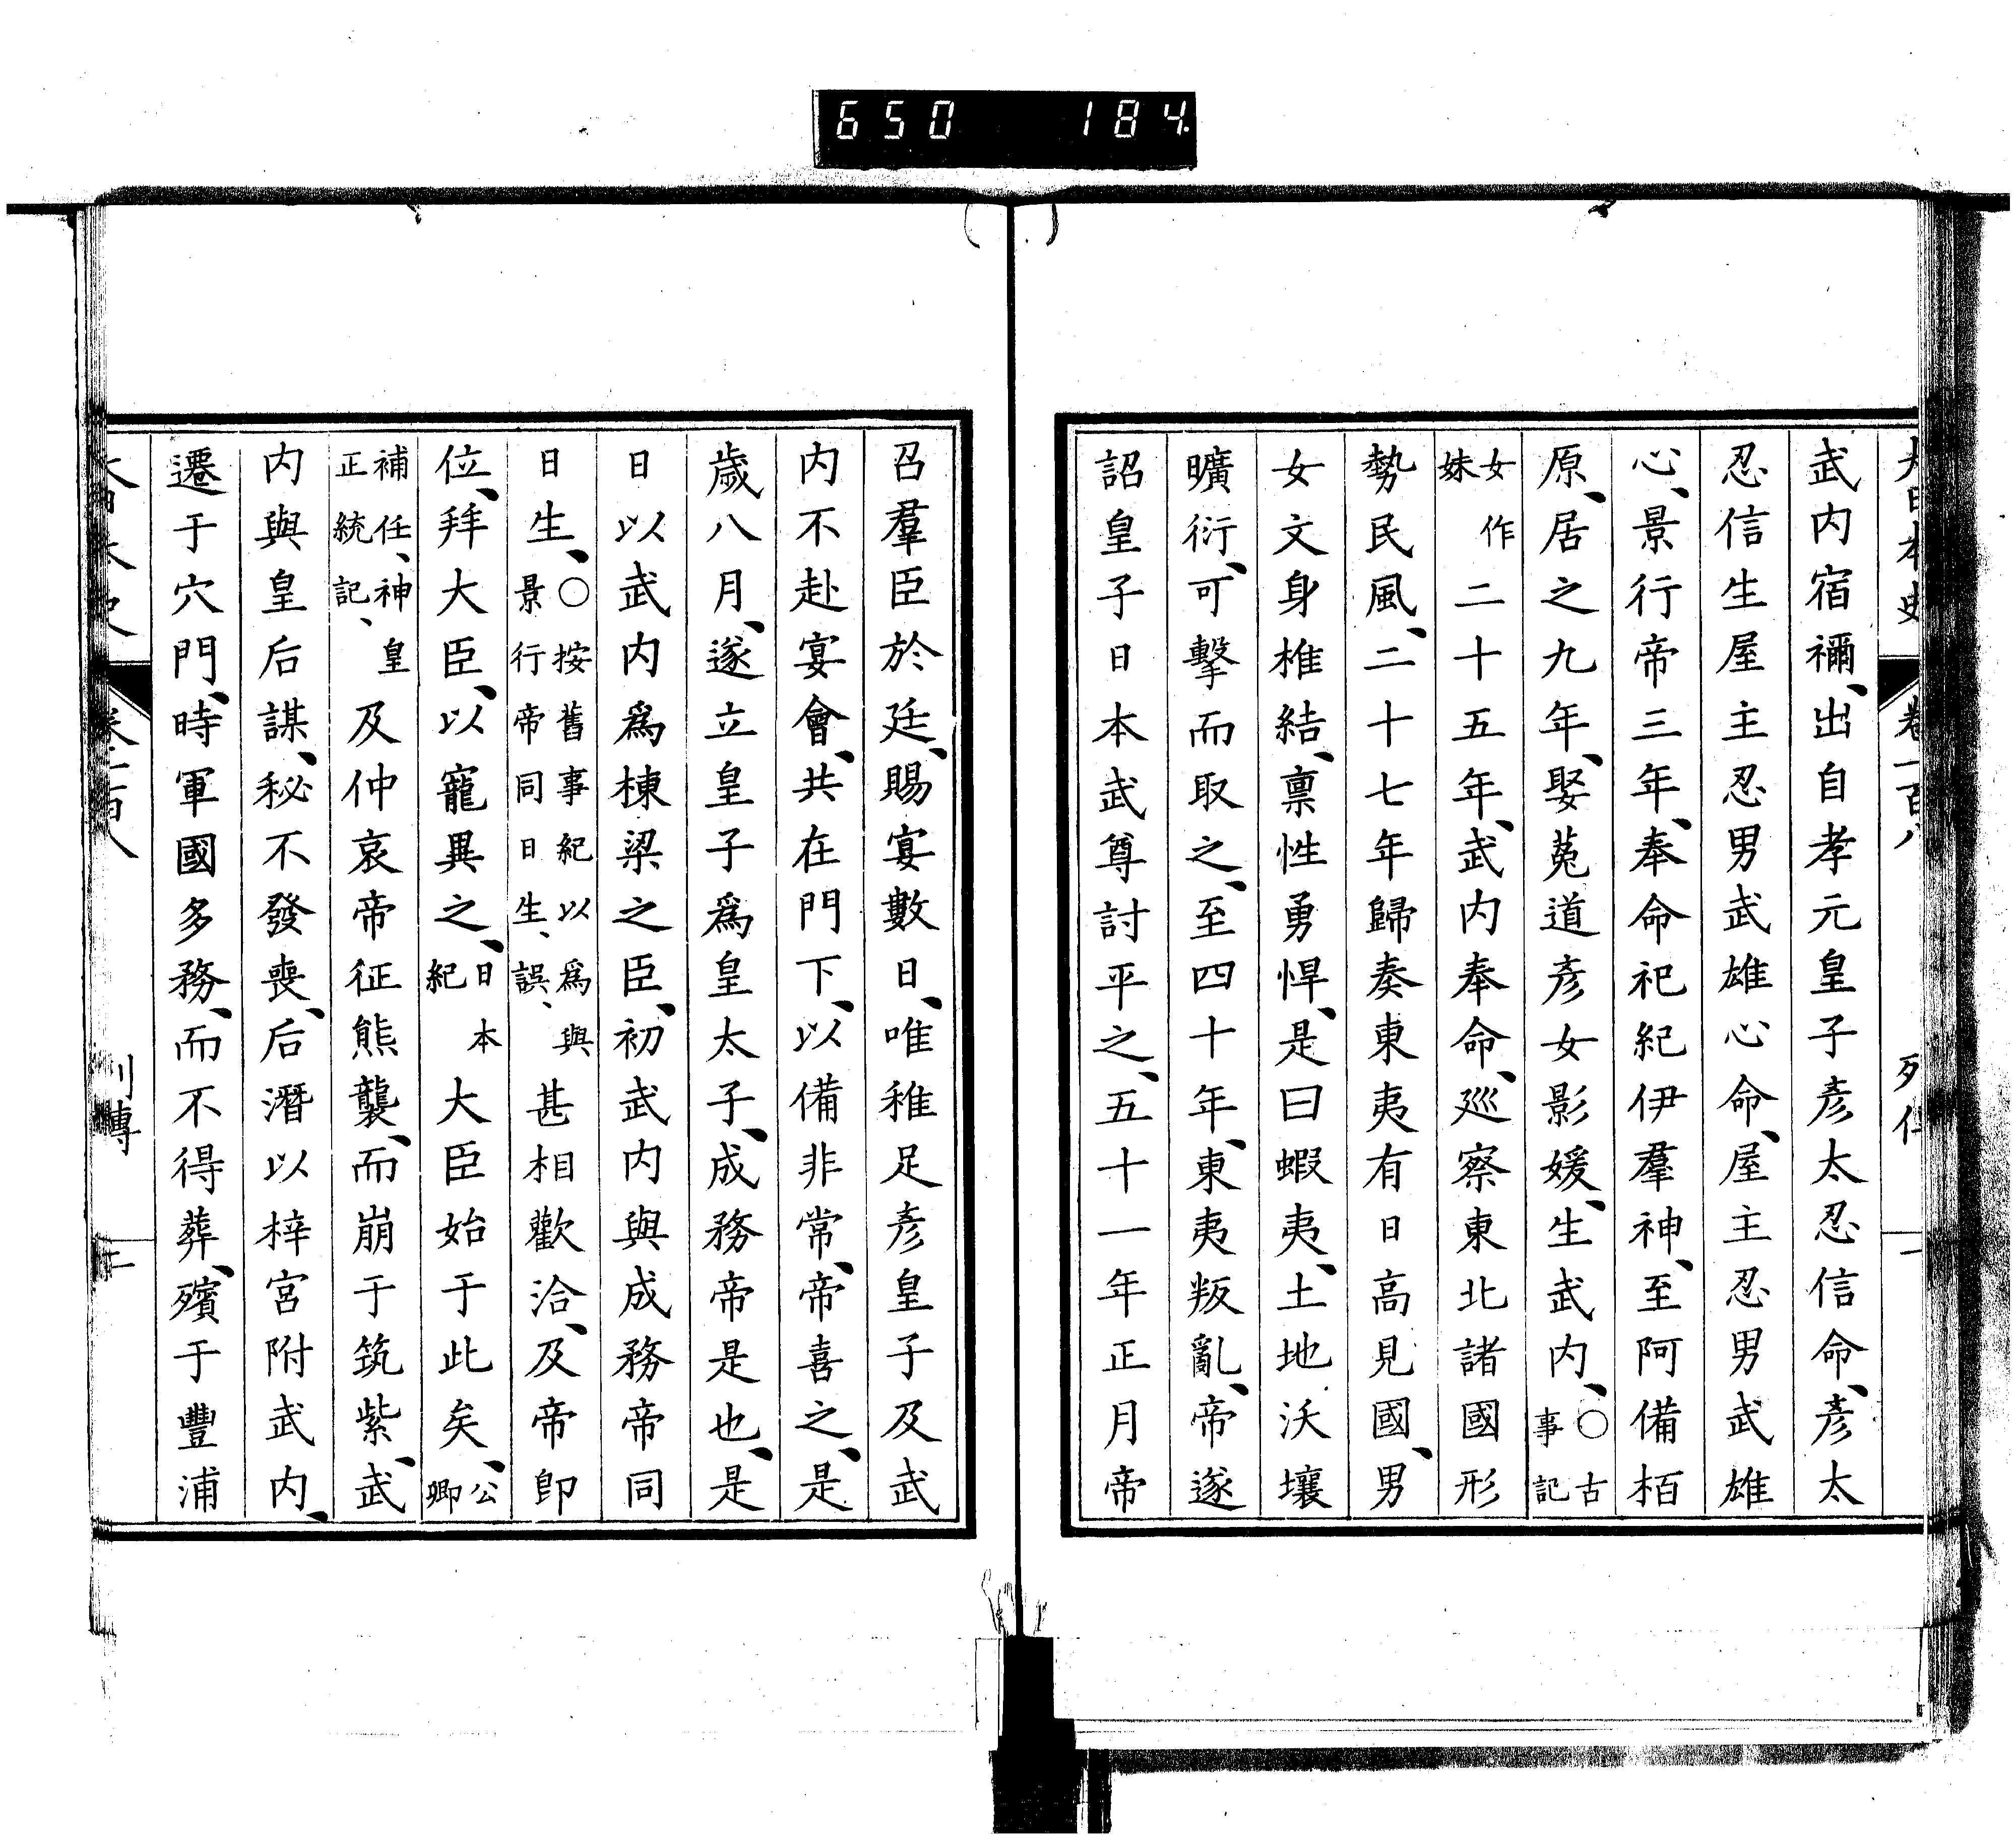 650 184
武内宿禰、出自孝元皇子彥太忍信命、彥太
忍信生屋主忍男武雄心命、屋主忍男武雄
心、景行帝三年、奉命祀紀伊羣神、至阿備栢
原、居之九年、娶菟道彥女影媛、生武内、〇古事記
女作妹二十五年、武内奉命、巡察東北諸國形
勢民風、二十七年歸奏東夷有日高見國、男
女文身椎結、禀性勇悍、是曰蝦夷、土地沃壤
曠衍、可擊而取之、至四十年、東夷叛亂、帝遂
詔皇子日本武尊討平之、五十一年正月帝
召羣臣於廷、賜宴數日、唯稚足彥皇子及武
内不赴宴會、共在門下、以備非常、帝喜之、是
歳八月、遂立皇子爲皇太子、成務帝是也、是
日以武内爲棟梁之臣、初武内與成務帝同
日生、〇按舊事紀以爲與景行帝同日生、誤、甚相歡洽、及帝卽
位、拜大臣、以寵異之、日本紀大臣始于此矣、公卿
補任、神皇正統記、及仲哀帝征熊襲、而崩于筑紫、武
内與皇后謀、秘不發喪、后潛以梓宮附武内、
遷于穴門、時軍國多務、而不得葬、殯于豐浦